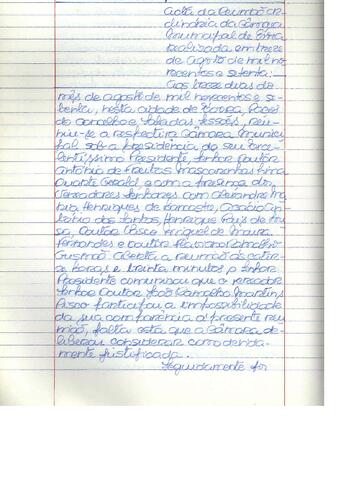 Acta da Reunião or
dinária da Câmara
Municipal de
realizada em treze
de Agosto de mil no
vecentos e setenta:
Aos treze dias do
mês de agosto de mil novecentos e se
tenta, nesta cidade de Paços
do concelho e, sala das sessões, reu
niu-se a respectiva Câmara Munici
pal sob a presidência do seu Exce
lentíssimo Presidente, senhor Doutor
António de Freitas Mascarenhas
Duarte e com a presença dos
vereadores senhores com Alexandre Ma
ria Henriques de Lancastre, Acácio An
tónio dos Santos, Henrique Luís de
Doutor Vasco Miguel de Moura
Fernandes e Doutor Flaviano
Gusmão. Aberta a reunião às cator
ze horas e trinta minutos o senhor
Presidente comunicou que o vereador
senhor Doutor João Carvalho Martins
participou a impossibilidade
da sua comparência à presente reu
nião, falta esta que a Câmara de
liberou considerar como devida
mente justificada.
Seguidamente foi